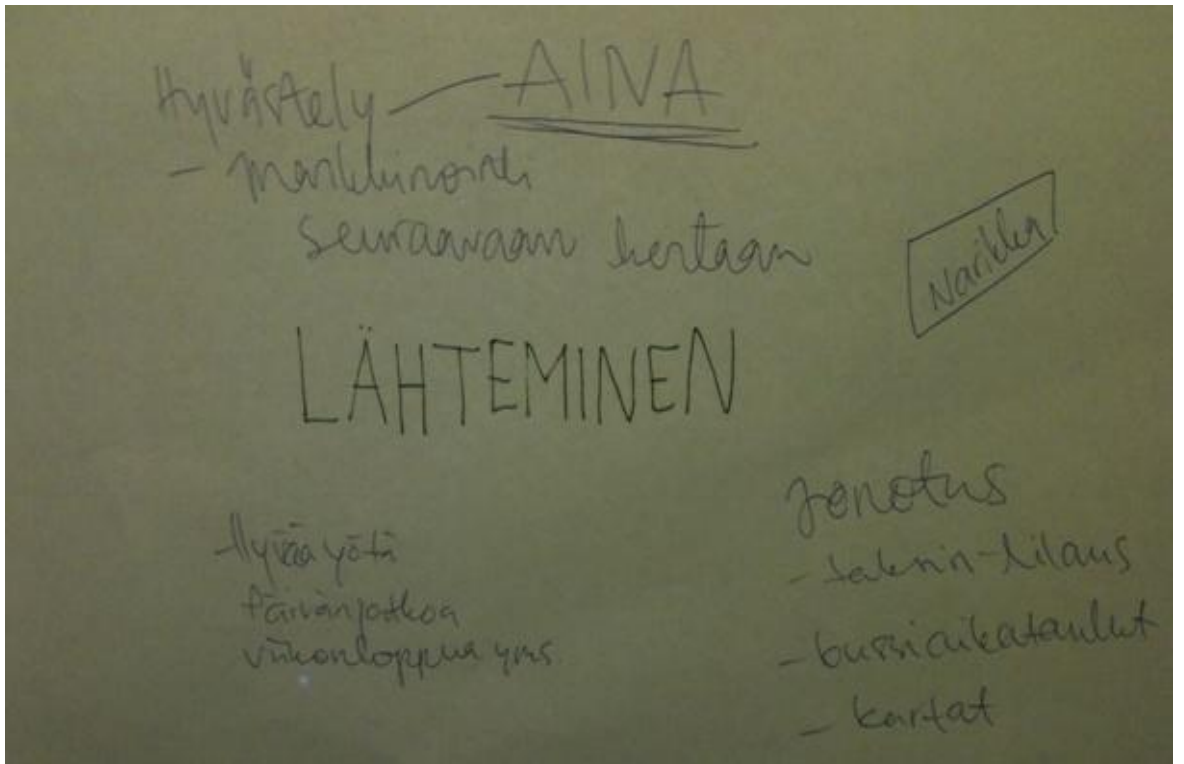 Hyvästely — AINA
- markkinointi
seuraavaan kertaan
Narikka
LÄHTEMINEN
-Hyvää yötä
Päivänjatkoa
viikonloppua yms.
Jonotus
- taksin tilaus
- bussiaikataulut
- kartat